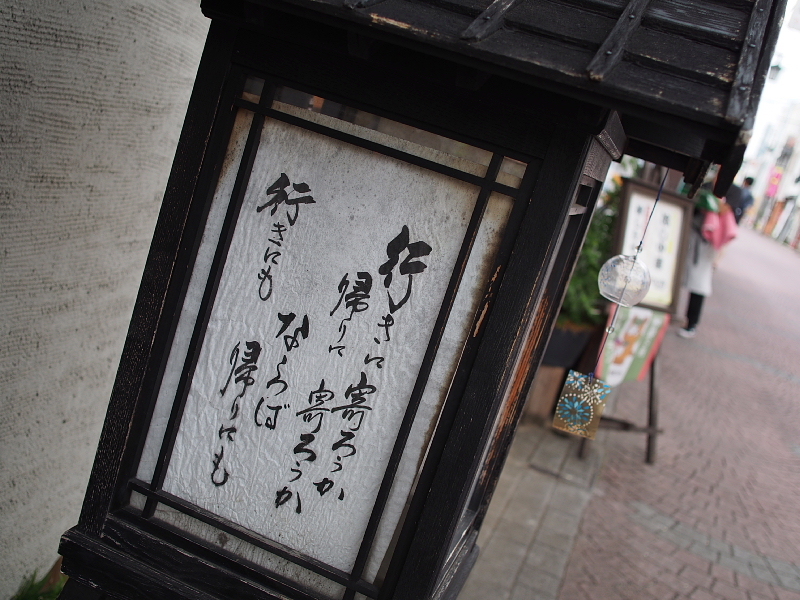 行きに寄ろうか
帰りに寄ろうか
ならば
行きにも
帰りにも